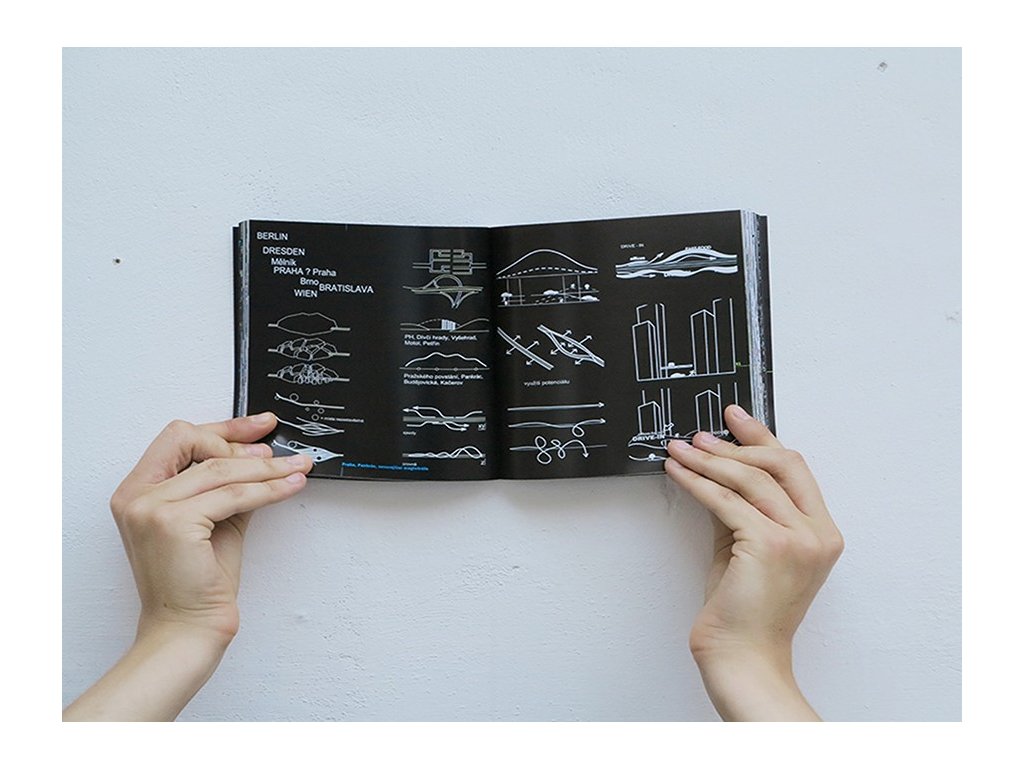 BERLIN
DRESDEN
Mělník
PRAHA ? Praha
Brno
BRATISLAVA
WIEN
PH, Dívčí hrady, Vyšehrad,
Motol, Petřín
Pražského povstání, Pankrác,
Budějovická, Kačerov
využití potenciálu
DRIVE - IN
DRIVE-IN